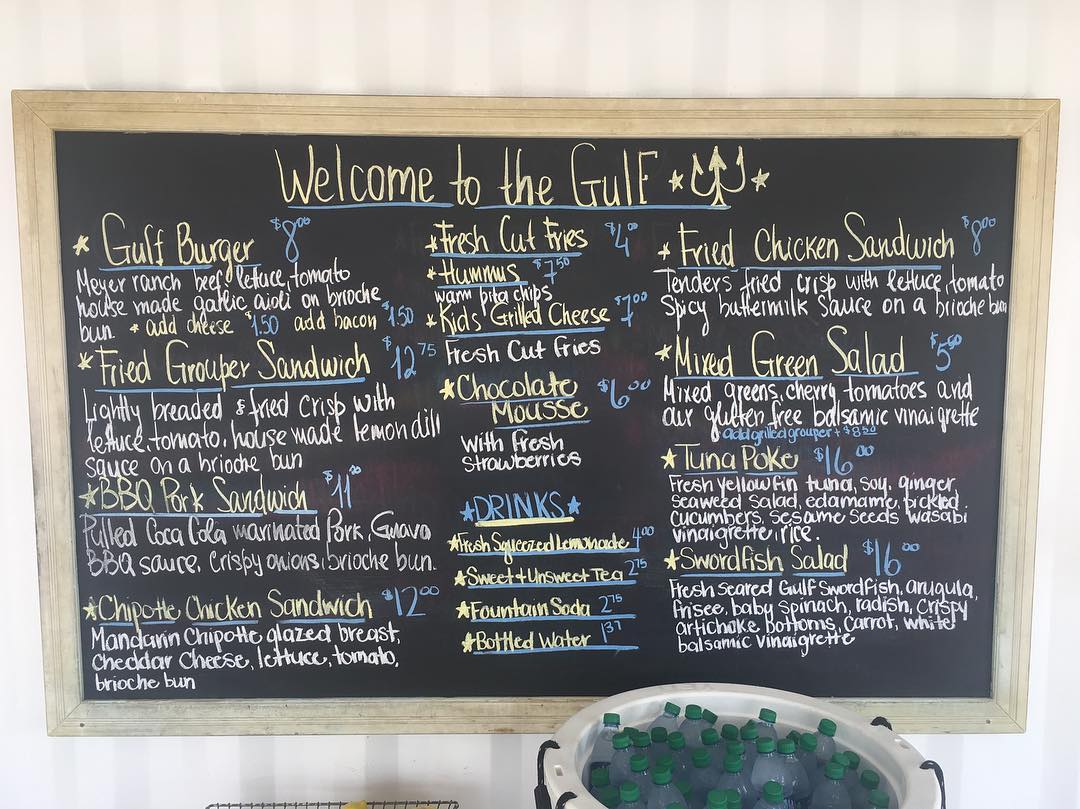 Welcome to the Gulf
Gulf Burger $8.00
Meyer ranch beef, lettuce, tomato
house made garlic aioli on brioche
bun * add cheese $1.50 add bacon $1.50
Fried Grouper Sandwich $12.75
Lightly breaded & fried crisp with
lettuce, tomato, house made lemon dill
sauce on a brioche bun
BBQ Pork Sandwich $11
Pulled Coca Cola marinated Pork, Guava
BBQ sauce, Crispy onions, brioche bun.
Chipotle Chicken Sandwich $12.00
Mandarin Chipotle glazed breast,
cheddar cheese, lettuce, tomato,
brioche bun
Fresh Cut Fries $4.00
Hummus $7.50
warm pita chips
Kids Grilled Cheese $7.00
Fresh Cut Fries
Chocolate $6.00
Mousse
with fresh
strawberries
DRINKS
Fresh Squeezed Lemonade 4.00
Sweet + Unsweet Tea 2.75
Fountain Soda 2.75
Bottled Water 1.37
Fried Chicken Sandwich $8.00
Tenders fried crisp with lettuce, tomato
Spicy buttermilk sauce on a brioche bun
Mixed Green Salad $5.50
Mixed greens, cherry tomatoes and
our gluten free balsamic vinaigrette
add grilled grouper + $8.50
Tuna Poke $16.00
Fresh yellowfin tuna, soy, ginger,
seaweed salad, edamame, pickled
cucumbers, sesame seeds wasabi
vinaigrette, rice.
Swordfish Salad $16.00
Fresh seared Gulf Swordfish, arugula,
frisee, baby spinach, radish, crispy
artichoke bottoms, carrot, white
balsamic vinaigrette